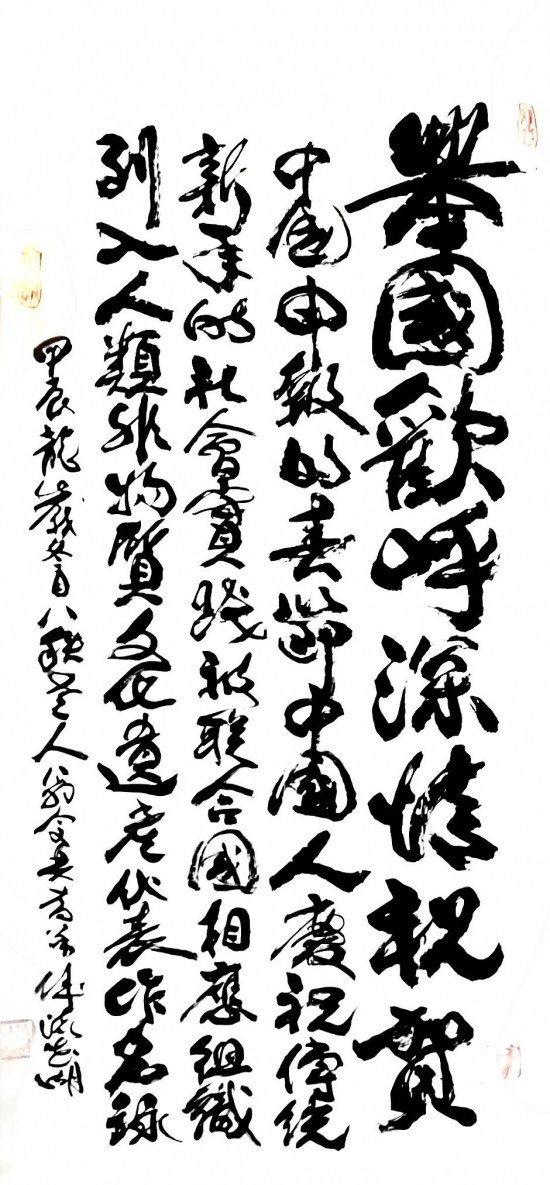 舉國歡呼深情祝賀
中國申報的春節中國人慶祝傳統
新年的社會實踐被联合國相應組織
列入人類非物質文化遺產代表作名錄
甲辰龍歲冬月八秩老人翁